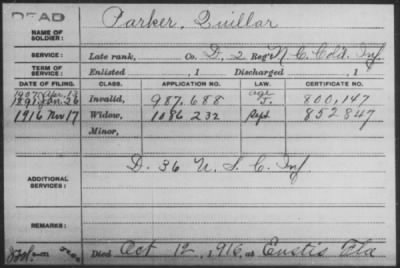 DEAD
NAME OF SOLDIER: Parker, Quillar
SERVICE: Late rank, Co. D, 2 Reg't N.C. Cold. Inf.
TERM OF SERVICE: Enlisted , 1 Discharged , 1
DATE OF FILING. CLASS. APPLICATION NO. LAW. CERTIFICATE NO.
1907 Apr. 13 age
1891 Jan. 26 Invalid, 987.688 J. 800,147
1916 Nov 17 Widow, 1086232 Sept 852847
Minor,
ADDITIONAL SERVICES: D. 36 U.S.C. Inf
REMARKS:
Died Oct 12, 1916, at Eustis Fla